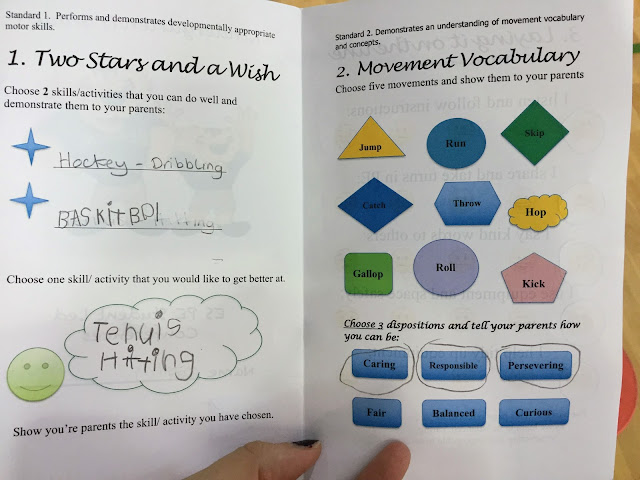 Standard 1. Performs and demonstrates developmentally appropriate
motor skills.
1. Two Stars and a Wish
Choose 2 skills/activities that you can do well and
demonstrate them to your parents:
Hockey - Dribbling
BASKitBDl
Choose one skill/ activity that you would like to get better at.
Tenuis
Hitting
Show you're parents the skill/ activity you have chosen.
Standard 2. Demonstrates an understanding of movement vocabulary
and concepts.
2. Movement Vocabulary
Choose five movements and show them to your parents
Jump
Run
Skip
Catch
Throw
Hop
Gallop
Roll
Kick
Choose 3 dispositions and tell your parents how
you can be:
Caring
Responsible
Persevering
Fair
Balanced
Curious